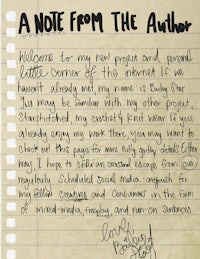 A NOTE FROM THE Author
Welcome to my new project and personal
little corner of the internet. If we
haven't already met, my name is Bailey Star
You may be familiar with my other project,
Starstitched, my crochet & knit wear. If you
already enjoy my work there, you may want to
check out this pages for more nitty gritty details. Either
way, I hope to offer an occasional escape from your
regularly scheduled social media anguish for
my fellow creatives and consumers in the form
of mixed-media, freeplay and run-on sentences.
love,